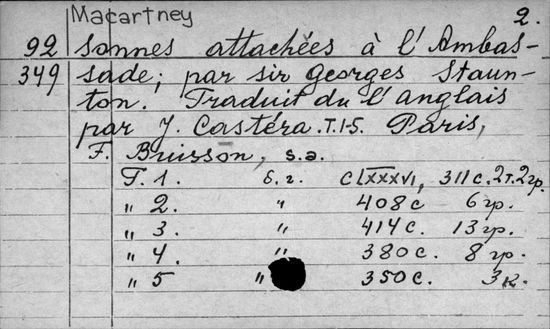 Macartney 2.
92 sonnes attachées à l'Ambas-
349 sade; par sir Georges Staun-
ton. Traduit du l'anglais
par J. Castéra. T.1-5. Paris,
F. Buisson, s.a.
T. 1. б. г. CLXXXVI, 311 с. 2 т. 2 гр.
" 2. " 408 с 6 гр.
" 3. " 414 с. 13 гр.
" 4. " 380 с. 8 гр.
" 5 " 350 с.